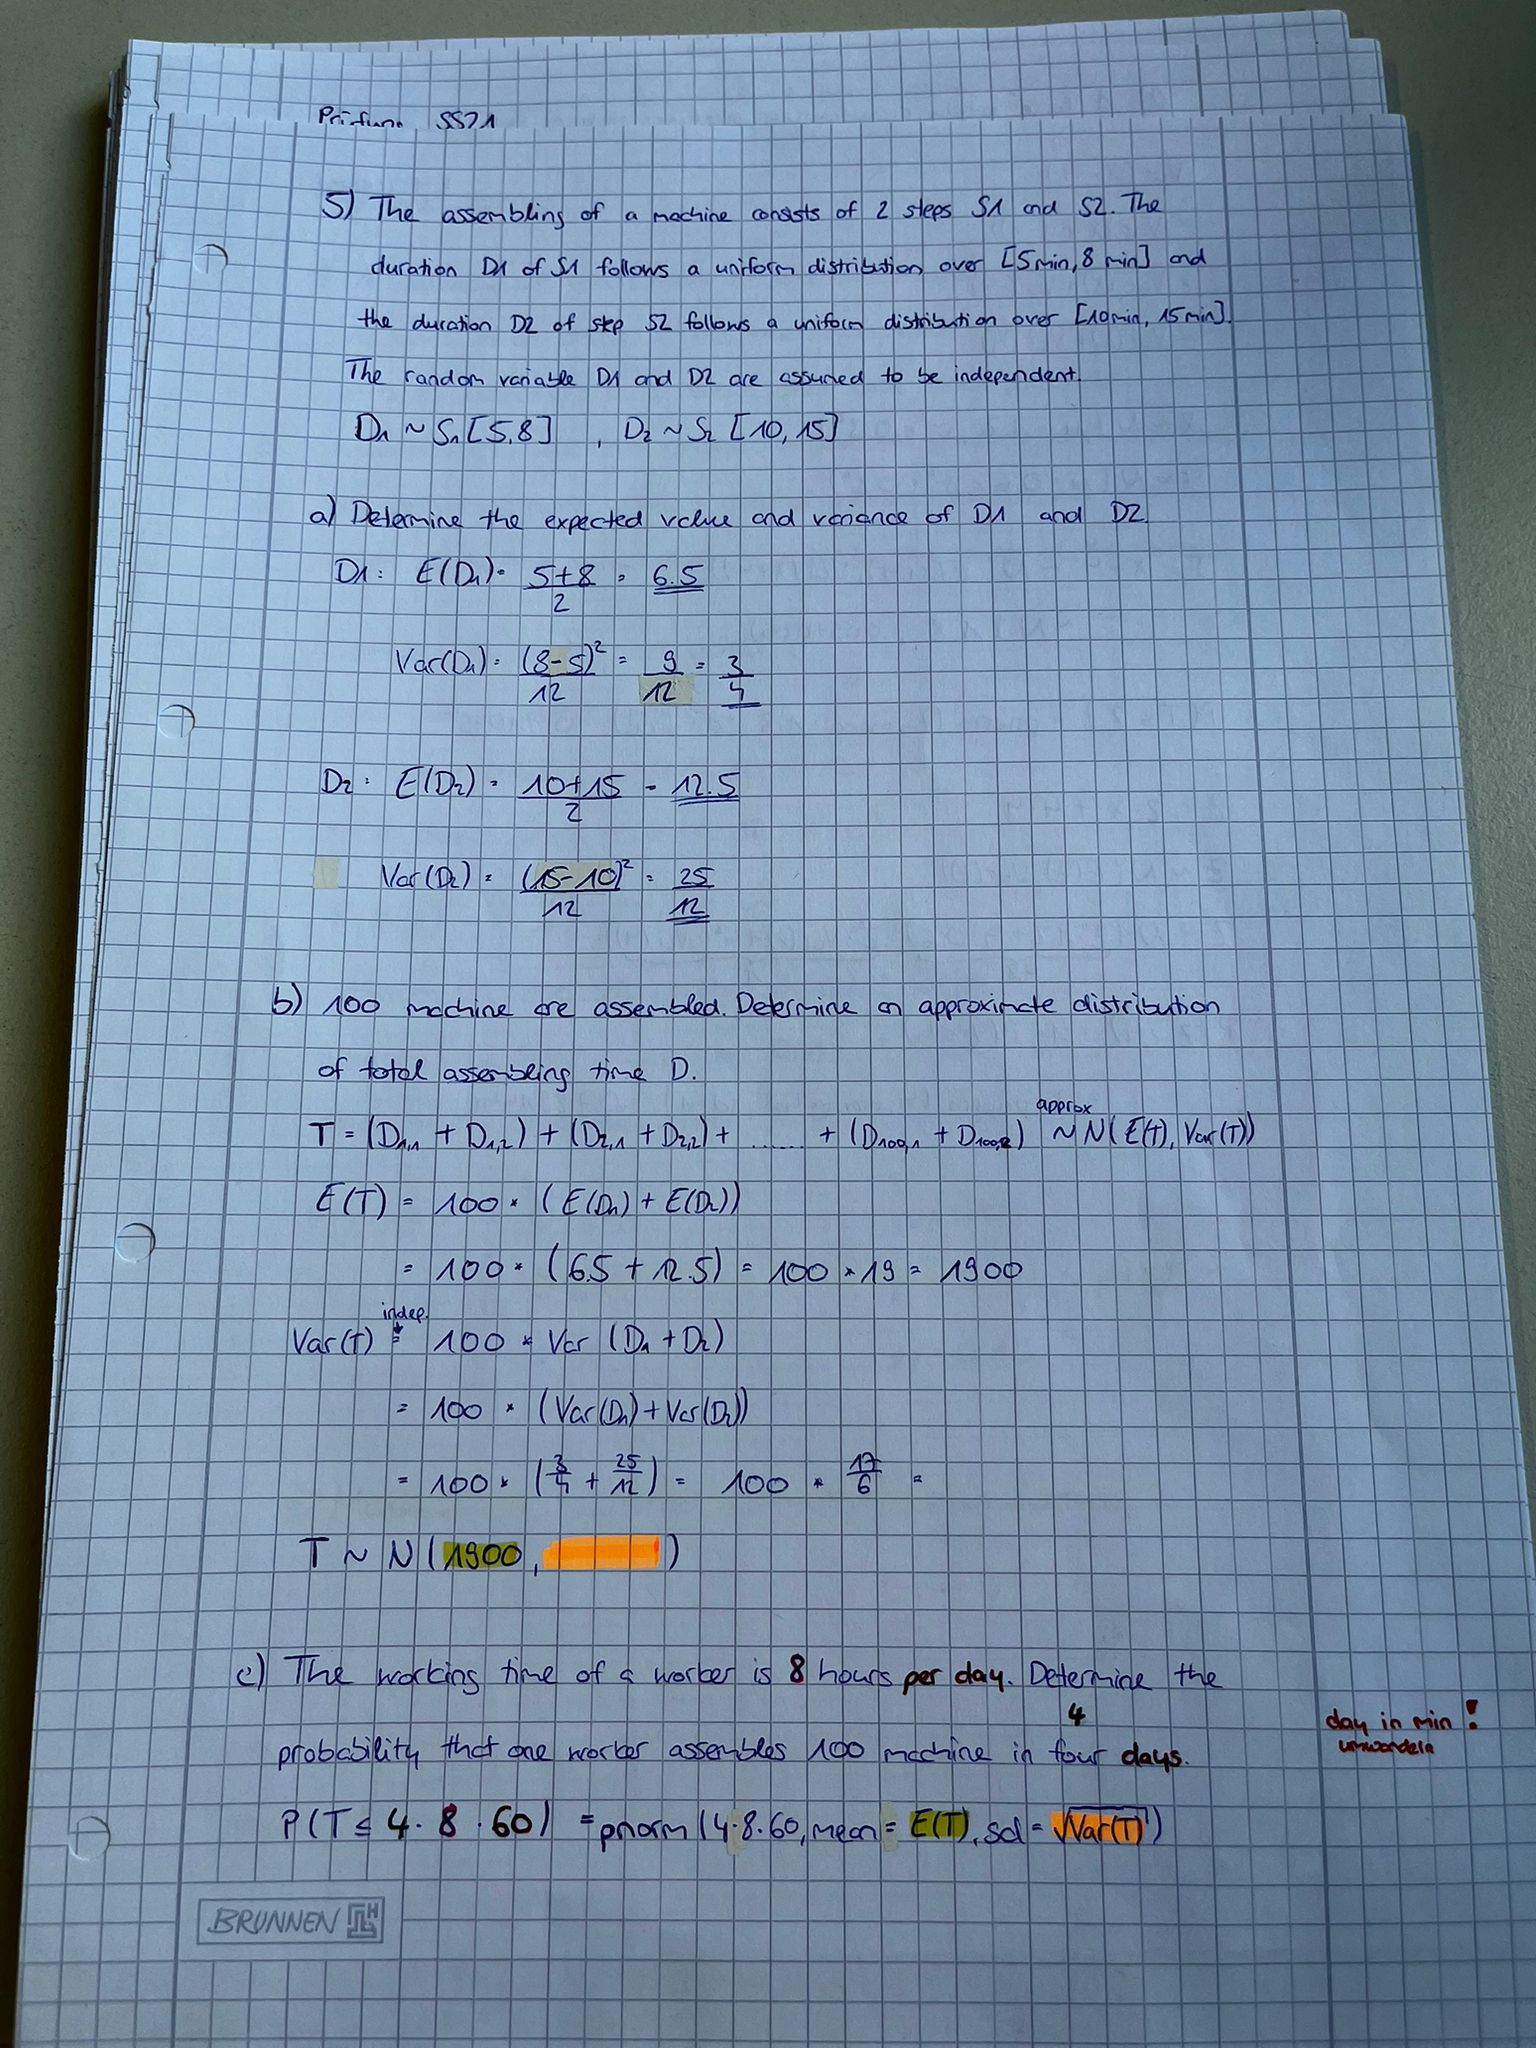 Prüfung SS21
5) The assembling of a machine consists of 2 steps S1 and S2. The
duration D1 of S1 follows a uniform distribution over [5min, 8 min] and
the duration D2 of step S2 follows a uniform distribution over [10min, 15min].
The random variable D1 and D2 are assumed to be independent.
D₁ ~ S₁ [5,8] , D₂ ~ S₂ [10, 15]
a) Determine the expected value and variance of D1 and D2.
D1: E(D₁) = (5+8)/2 = 6.5
Var(D₁) = (8-5)²/12 = 9/12 = 3/4
D₂: E(D₂) = (10+15)/2 = 12.5
Var(D₂) = (15-10)²/12 = 25/12
b) 100 machine are assembled. Determine an approximate distribution
of total assembling time D.
approx
T = (D₁,₁ + D₁,₂) + (D₂,₁ + D₂,₂) + ...... + (D₁₀₀,₁ + D₁₀₀,₂) ~ N( E(T), Var(T))
E(T) = 100 * (E(D₁) + E(D₂))
= 100 * (6.5 + 12.5) = 100 * 19 = 1900
indep.
Var(T) = 100 * Var (D₁ + D₂)
= 100 * (Var(D₁) + Var(D₂))
= 100 * (3/4 + 25/12) = 100 * 17/6 =
T ~ N (1900, )
c) The working time of a worker is 8 hours per day. Determine the
4
day in min !
umwandeln
probability that one worker assembles 100 machine in four days.
P(T ≤ 4 · 8 · 60) = pnorm (4·8·60, mean = E(T), sd = √Var(T))
BRUNNEN